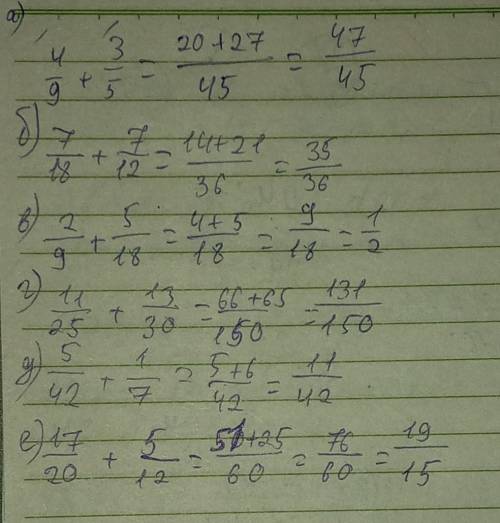 а) 4/9 + 3/5 = (20+27)/45 = 47/45
б) 7/18 + 7/12 = (14+21)/36 = 35/36
в) 2/9 + 5/18 = (4+5)/18 = 9/18 = 1/2
г) 11/25 + 13/30 = (66+65)/150 = 131/150
д) 5/42 + 1/7 = (5+6)/42 = 11/42
е) 17/20 + 5/12 = (51+25)/60 = 76/60 = 19/15